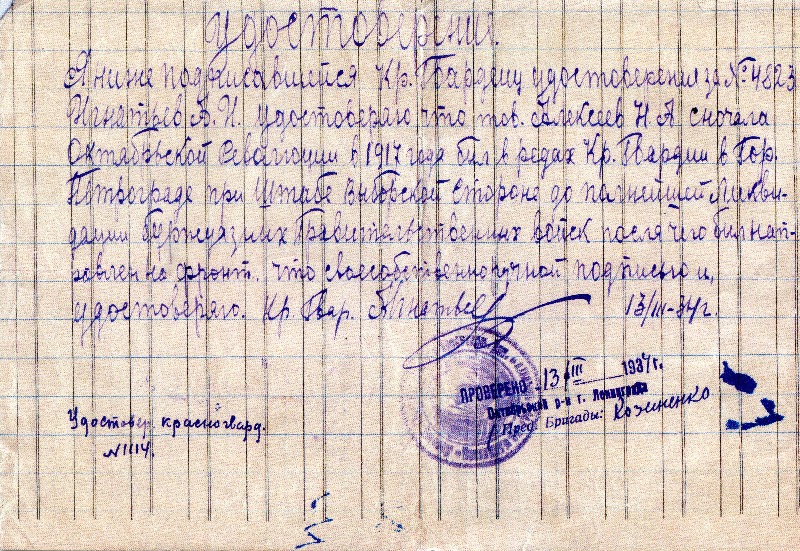 Удостоверение.
Я ниже подписавшейся Кр. Гвардеец удостоверения за № 4823
Игнатьев А. И. удостоверяю что тов. Алексеев Н А сночала
Октябрьской Революции в 1917 года был в редах Кр. Гвардии в Гор.
Петрограде при Штабе Выборской Стороне до полнейшей Ликви-
дации буржуазных Правительственних войск после чего был нап-
равлен на фронт. что своесобственноручной подписью и,
удостоверяю. Кр. Гвар. Игнатьев 13/III-34г.
ПРОВЕРЕНО 13 III 1934 г.
Октябрьский р-н г. Ленинграда
Пред. Бригады:
Удостовер. красногвард.
N1114.